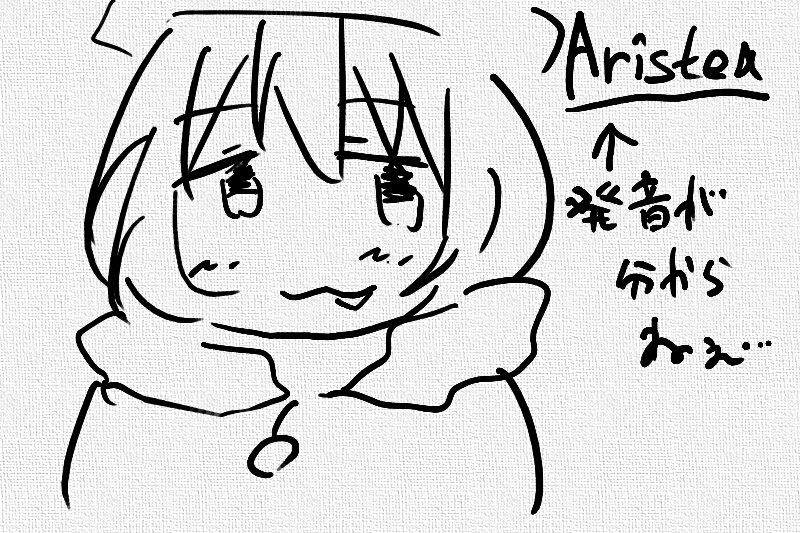 Aristea
↑
発音が
分から
ねぇ…